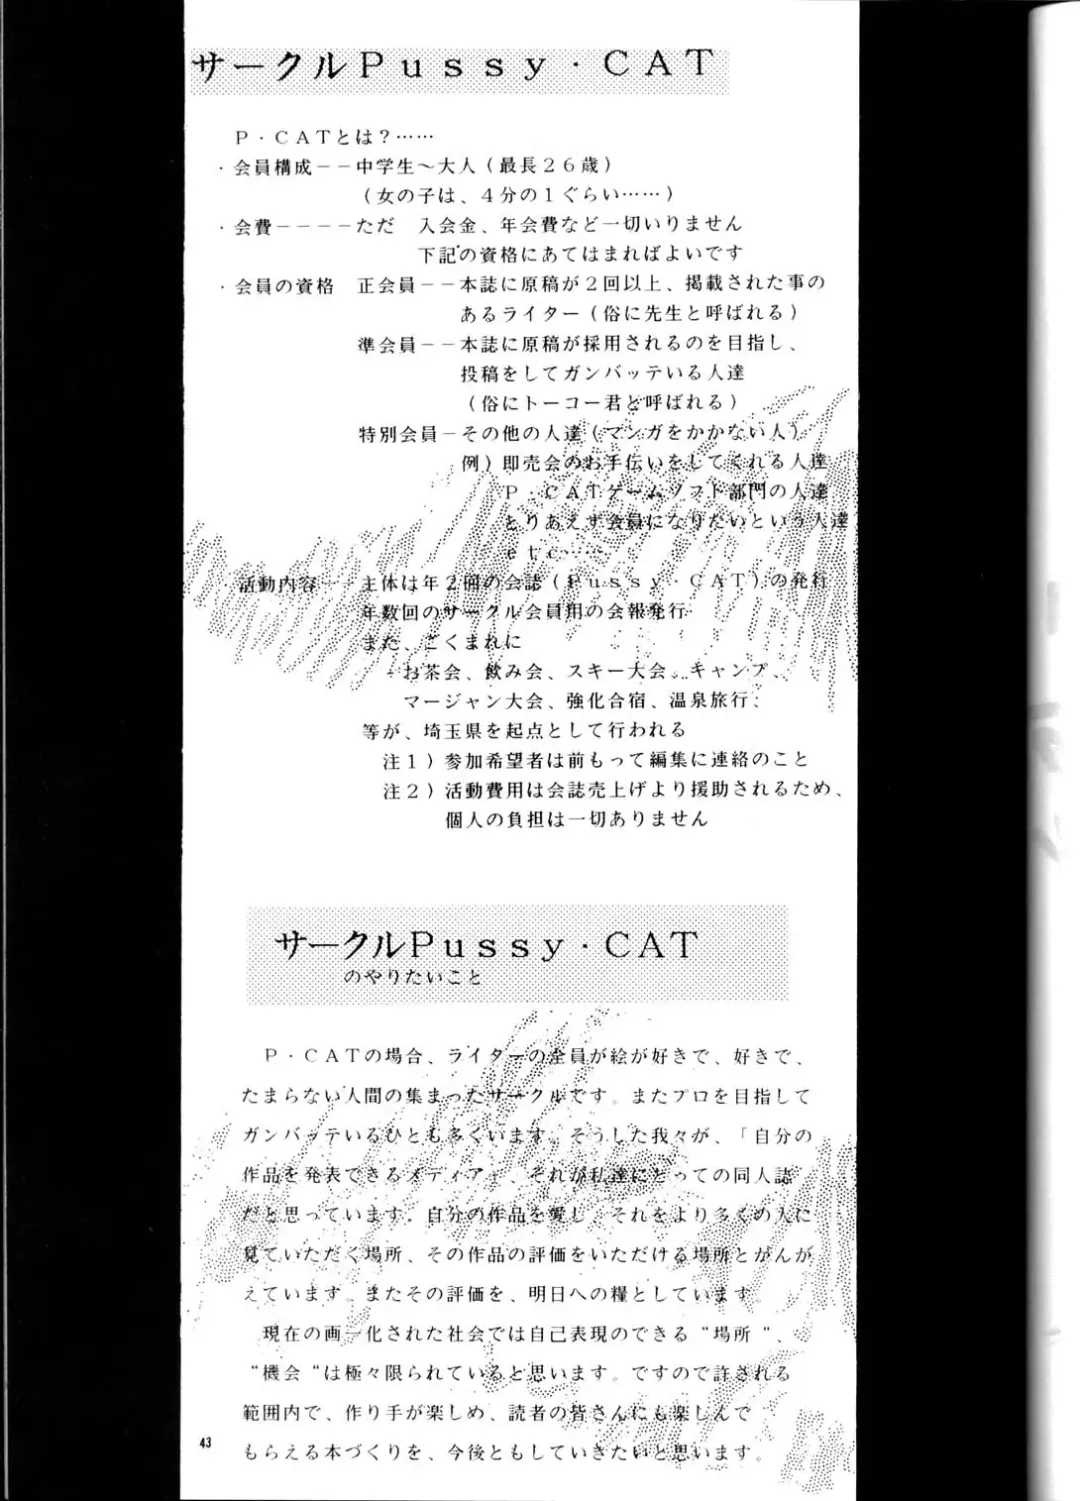 サークルPussy・CAT
P・CATとは？……
・会員構成――中学生～大人（最長26歳）
（女の子は、4分の1ぐらい……）
・会費――――ただ　入会金、年会費など一切いりません
下記の資格にあてはまればよいです
・会員の資格　正会員――本誌に原稿が2回以上、掲載された事の
あるライター（俗に先生と呼ばれる）
準会員――本誌に原稿が採用されるのを目指し、
投稿をしてガンバッテいる人達
（俗にトーコー君と呼ばれる）
特別会員－その他の人達（マンガをかかない人）
例）即売会のお手伝いをしてくれる人達
P・CATゲームソフト部門の人達
とりあえず会員になりたいという人達
etc……
活動内容――主体は年2回の会誌（Pussy・CAT）の発行
年数回のサークル会員用の会報発行
また、ごくまれに
お茶会、飲み会、スキー大会、キャンプ、
マージャン大会、強化合宿、温泉旅行、
等が、埼玉県を起点として行われる
注1）参加希望者は前もって編集に連絡のこと
注2）活動費用は会誌売上げより援助されるため、
個人の負担は一切ありません
サークルPussy・CAT
のやりたいこと
P・CATの場合、ライターの全員が絵が好きで、好きで、
たまらない人間の集まったサークルです。またプロを目指して
ガンバッテいるひとも多くいます。そうした我々が、「自分の
作品を発表できるメディア」、それが私達にとっての同人誌
だと思っています。自分の作品を愛し、それをより多くの人に
見ていただく場所、その作品の評価をいただける場所とがんが
えています。またその評価を、明日への糧としています。
現在の画一化された社会では自己表現のできる“場所“、
“機会“は極々限られていると思います。ですので許される
範囲内で、作り手が楽しめ、読者の皆さんにも楽しんで
もらえる本づくりを、今後ともしていきたいと思います。
43